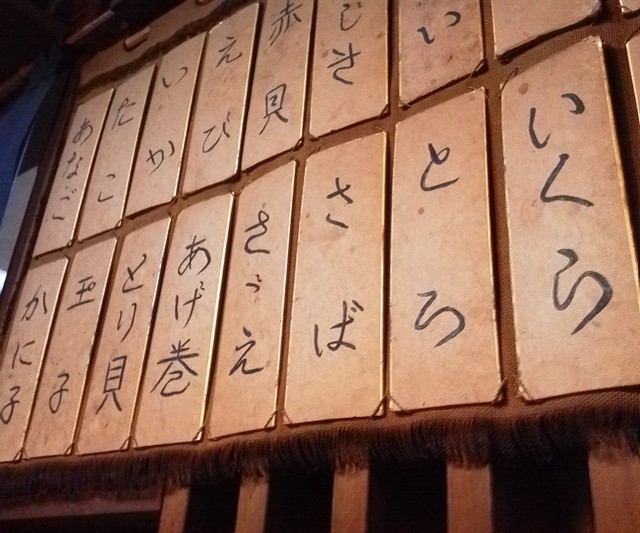 い
赤貝
えび
いか
たこ
あなご
いくら
とろ
さば
さゞえ
あげ巻
とり貝
玉子
かに子